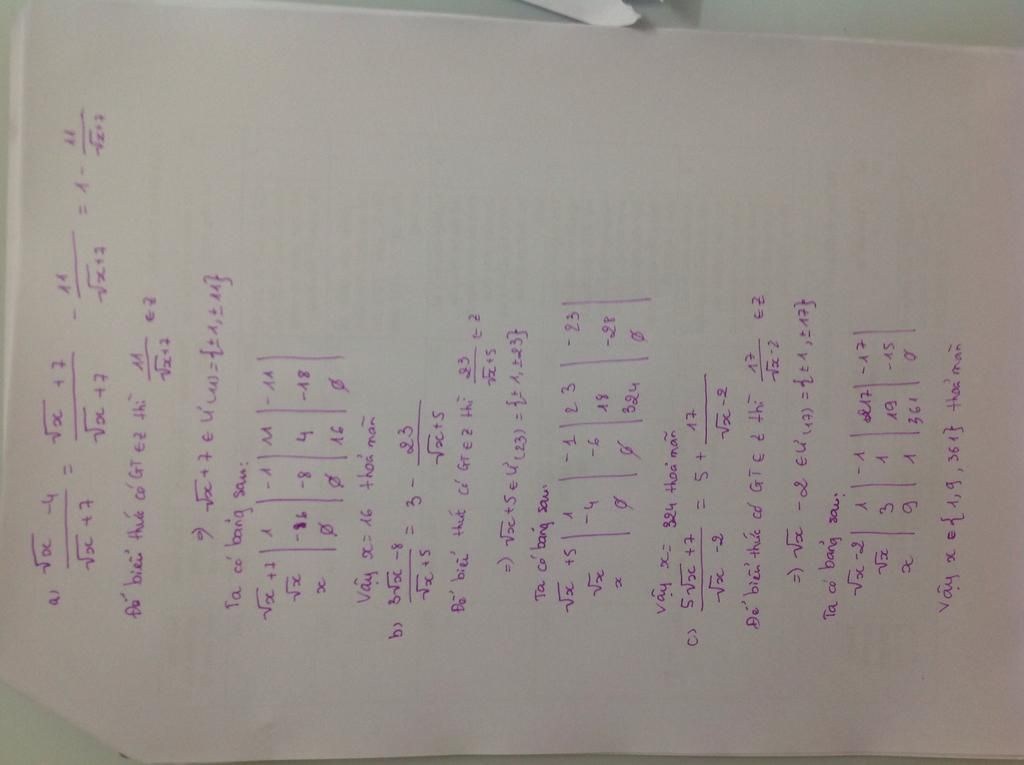 a) (√x - 4)/(√x + 7) = (√x + 7)/(√x + 7) - 11/(√x+7) = 1 - 11/(√x+7)
Để biểu thức có GT ∈ Z thì 11/(√x+7) ∈ Z
⇒ √x + 7 ∈ Ư(11) = {±1, ±11}
Ta có bảng sau:
√x + 7 | 1 | -1 | 11 | -11 |
√x | -6 | -8 | 4 | -18 |
x | ∅ | ∅ | 16 | ∅
Vậy x = 16 thoả mãn
b) (3√x - 8)/(√x + 5) = 3 - 23/(√x+5)
Để biểu thức có GT ∈ Z thì 23/(√x+5) ∈ Z
⇒ √x + 5 ∈ Ư(23) = {±1, ±23}
Ta có bảng sau:
√x + 5 | 1 | -1 | 23 | -23 |
√x | -4 | -6 | 18 | -28 |
x | ∅ | ∅ | 324 | ∅
Vậy x = 324 thoả mãn
c) (5√x + 7)/(√x - 2) = 5 + 17/(√x - 2)
Để biểu thức có GT ∈ Z thì 17/(√x-2) ∈ Z
⇒ √x - 2 ∈ Ư(17) = {±1, ±17}
Ta có bảng sau:
√x - 2 | 1 | -1 | 17 | -17
√x | 3 | 1 | 19 | -15
x | 9 | 1 | 361 | ∅
Vậy x ∈ {1, 9, 361} thoả mãn